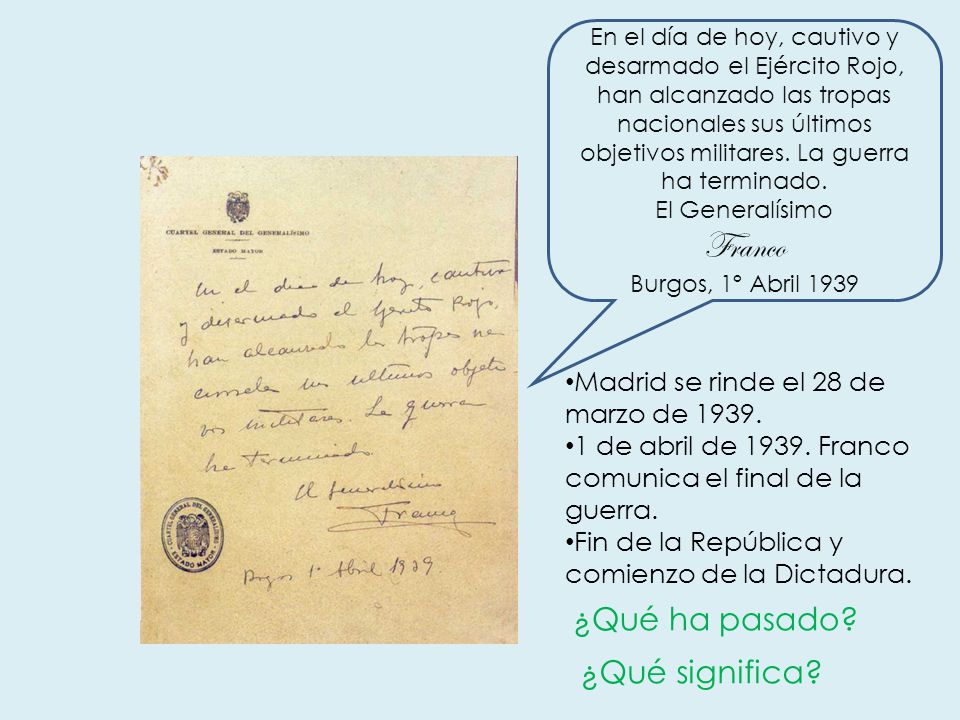 En el día de hoy, cautivo y
desarmado el Ejército Rojo,
han alcanzado las tropas
nacionales sus últimos
objetivos militares. La guerra
ha terminado.
El Generalísimo
Franco
Burgos, 1º Abril 1939
CUARTEL GENERAL DEL GENERALÍSIMO
ESTADO MAYOR
En el dia de hoy, cautivo
y desarmado el Ejercito Rojo,
han alcanzado las tropas na
cionales sus ultimos objeti-
vos militares. La guerra
ha terminado.
El Generalisimo
Franco
Burgos 1º Abril 1939.
CUARTEL GENERAL DEL GENERALISIMO
ESTADO MAYOR
•Madrid se rinde el 28 de
marzo de 1939.
•1 de abril de 1939. Franco
comunica el final de la
guerra.
•Fin de la República y
comienzo de la Dictadura.
¿Qué ha pasado?
¿Qué significa?